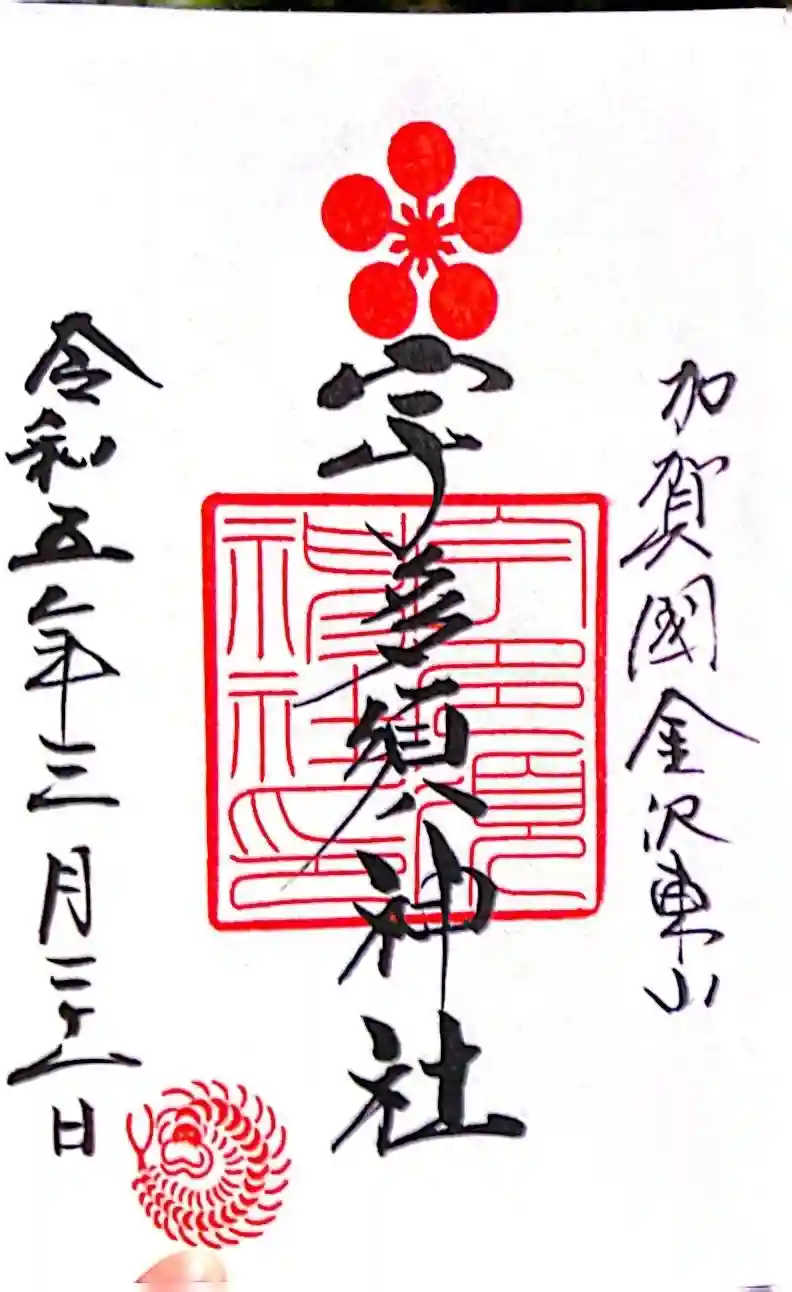 加賀國金沢東山
宇多須神社
宇多須神社印
令和五年三月二十一日